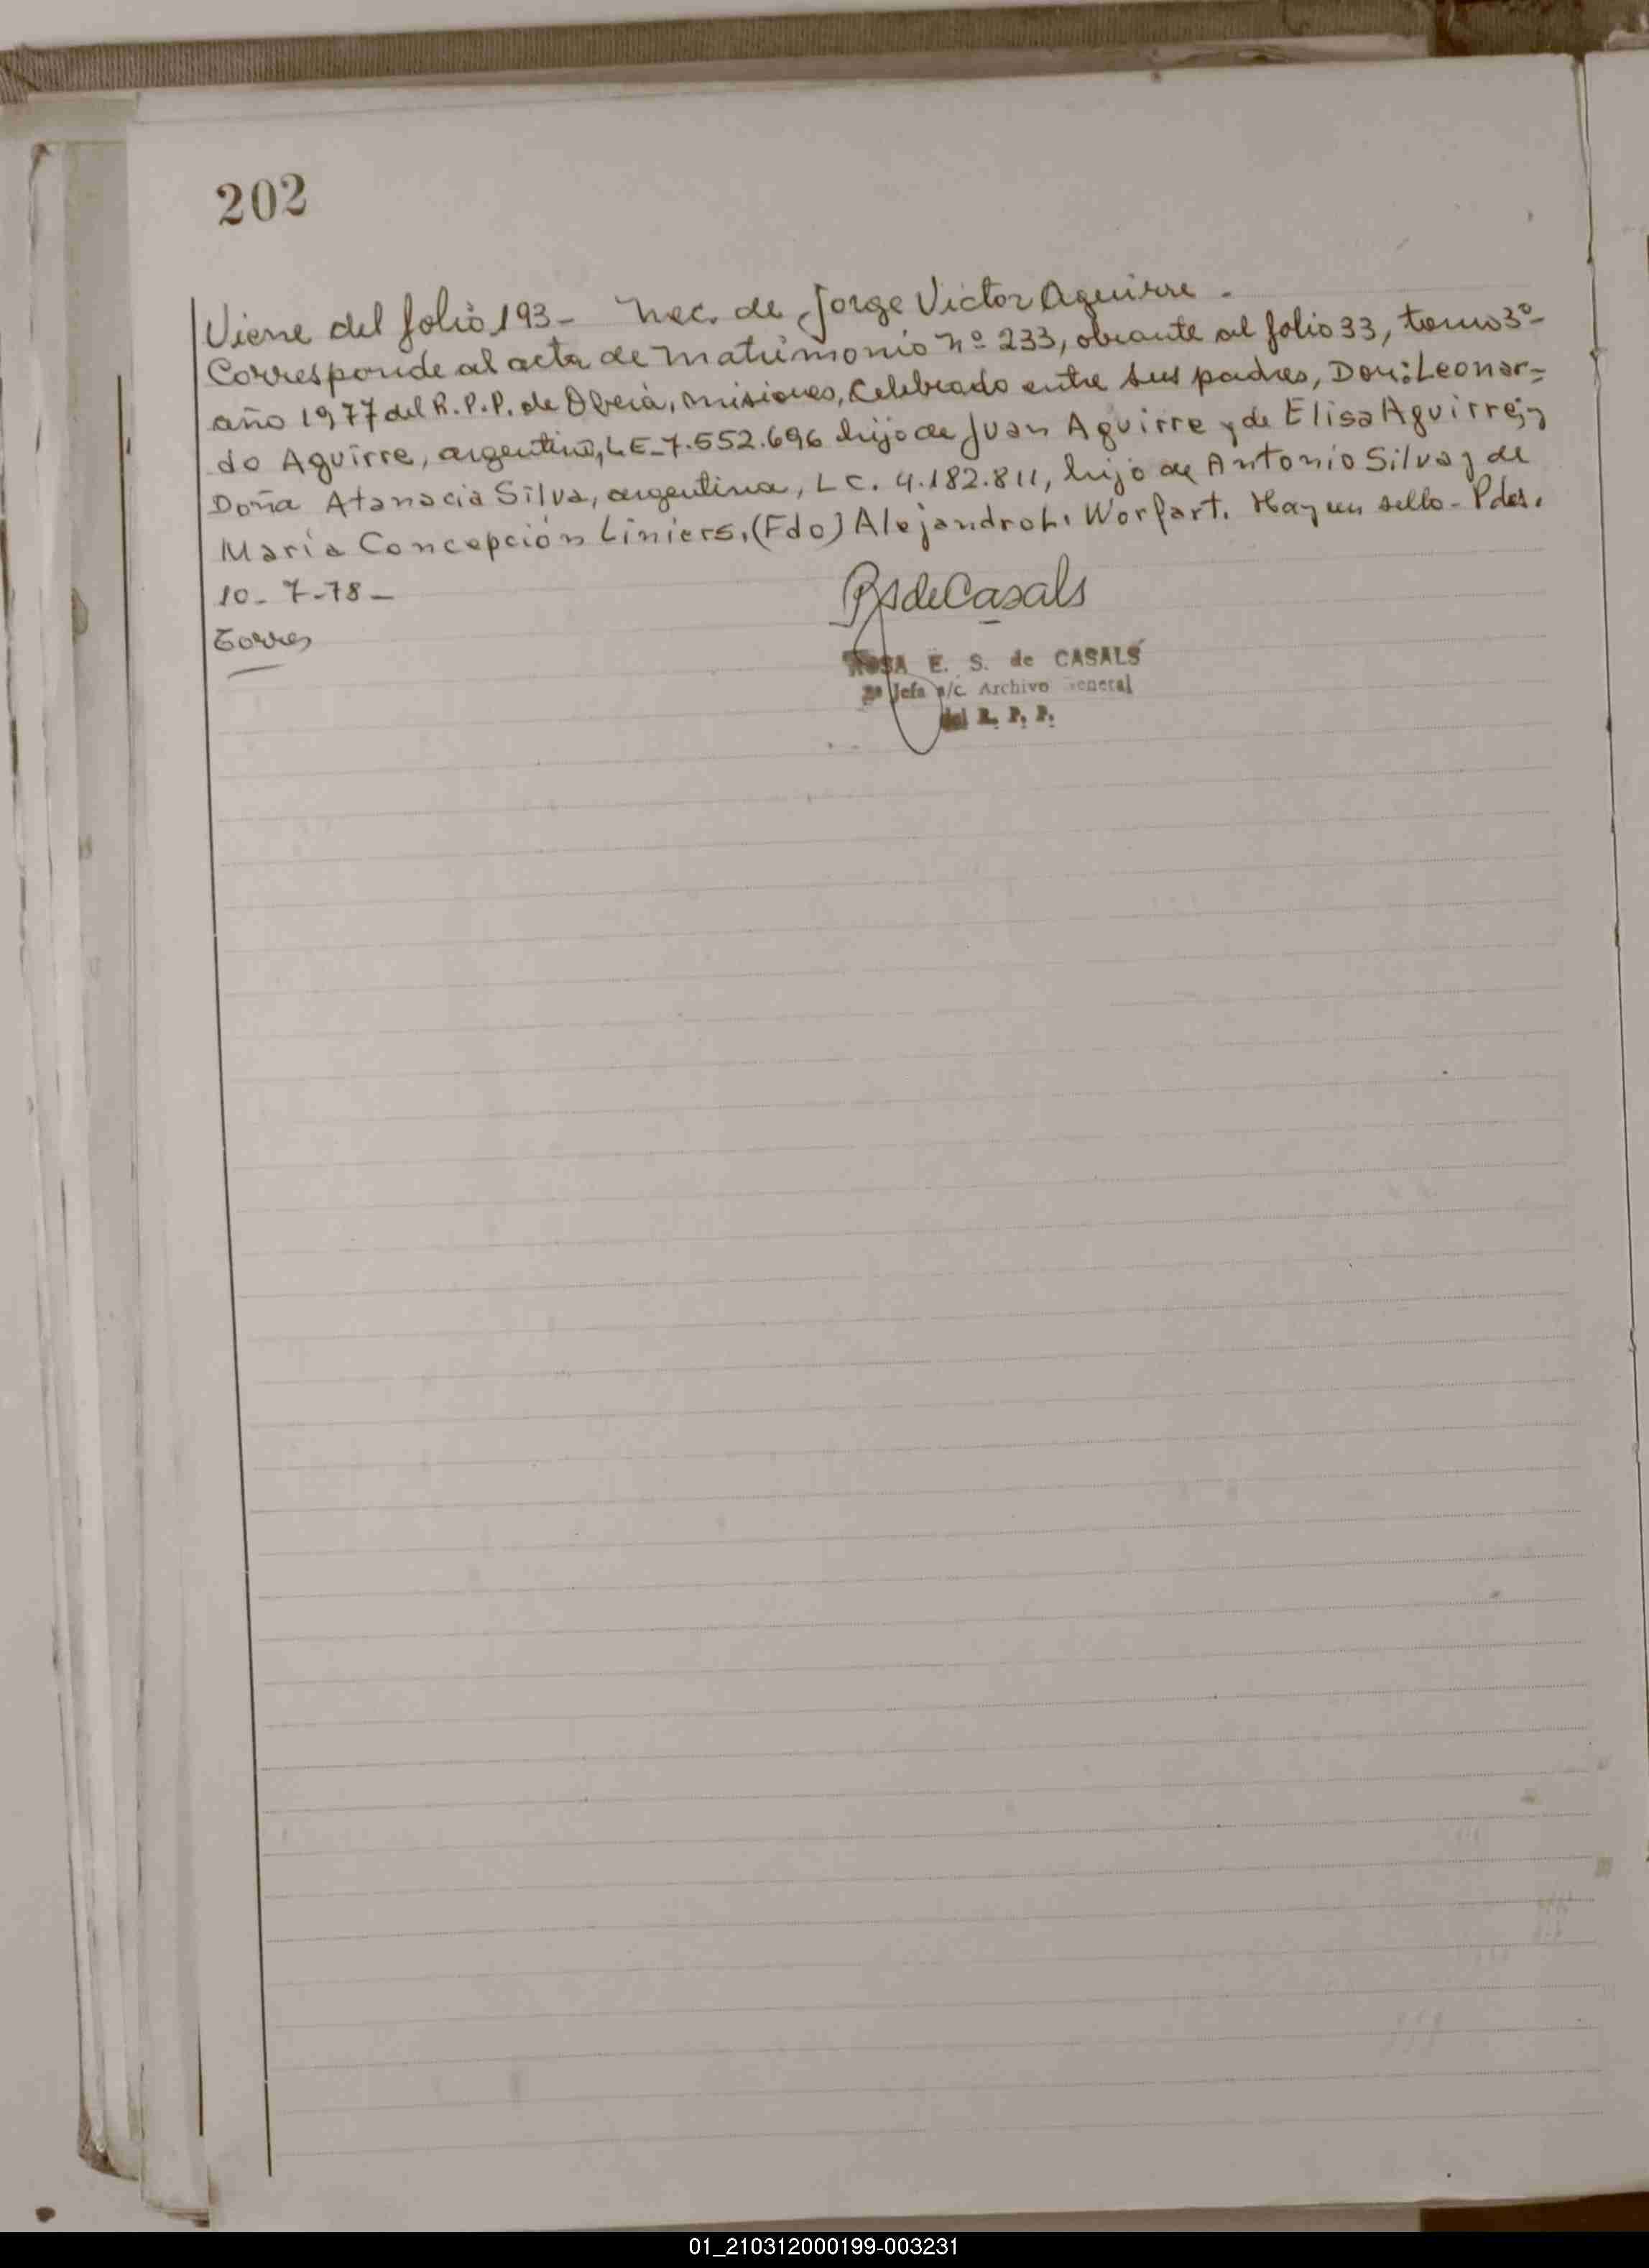 202
Viene del folio 193- Nac. de Jorge Victor Aguirre.
Corresponde al acta de matrimonio nº 233, obrante al folio 33, tomo 3º-
año 1977 del R.P.P. de Oberá, Misiones, Celebrado entre sus padres, Don: Leonar=
do Aguirre, argentino, LE-7.552.696 hijo de Juan Aguirre y de Elisa Aguirre; y
Doña Atanacia Silva, argentina, LC. 4.182.811, hijo de Antonio Silva y de
María Concepción Liniers. (Fdo) Alejandro L. Worfart. Hay un sello- Pdas.
10-7-78-
Torres
RSdeCasals
ROSA E. S. de CASALS
2º Jefa a/c. Archivo General
del R. P. P.
01_210312000199-003231